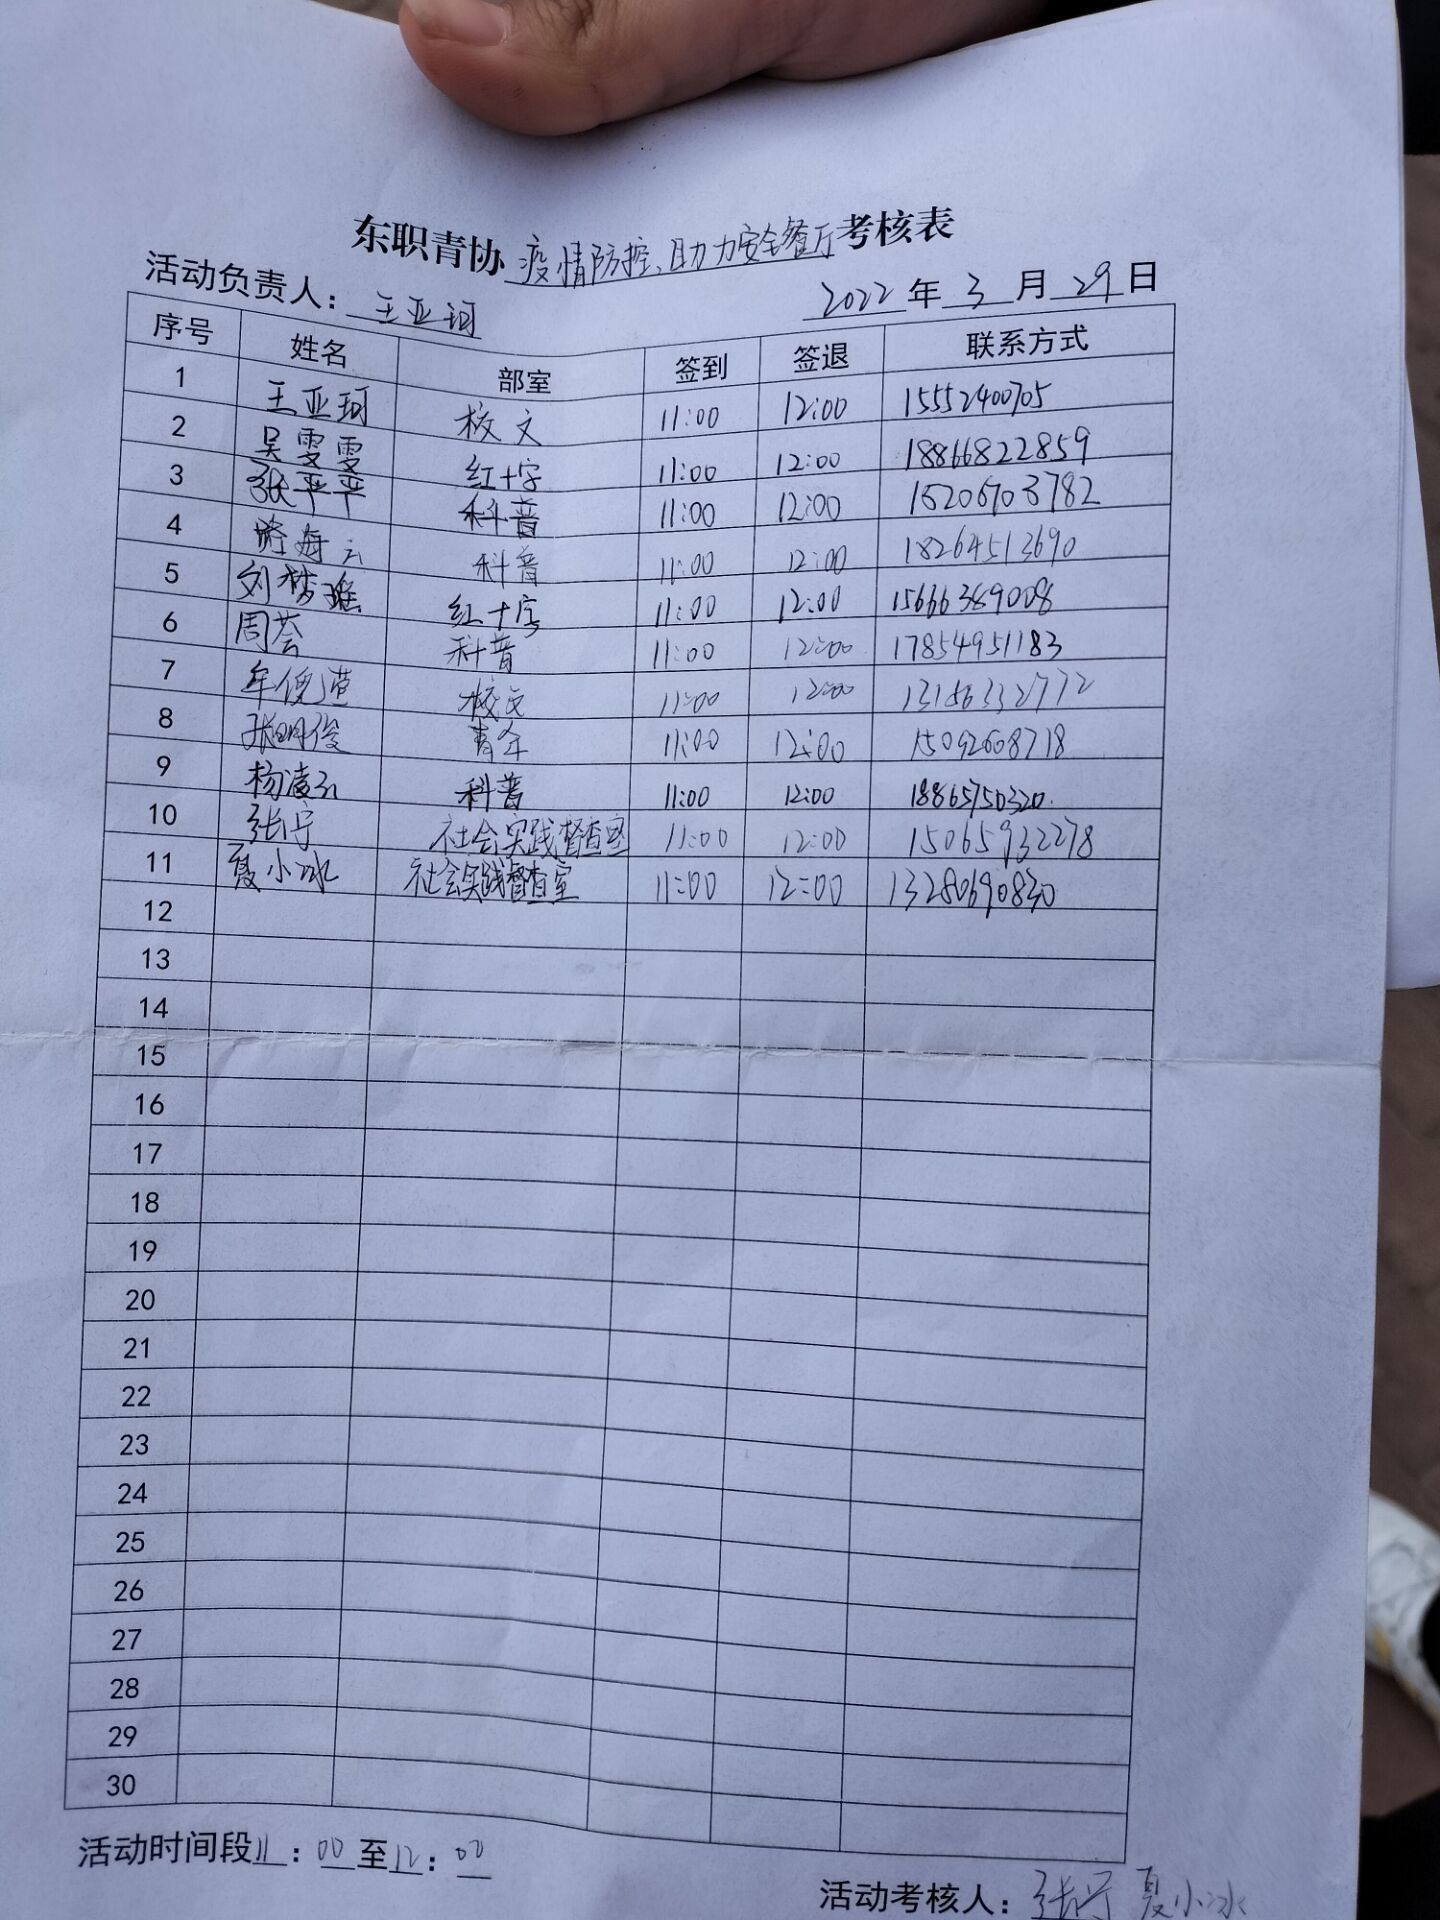 东职青协 疫情防控、助力安全餐厅 考核表
活动负责人：王亚珂 2022 年 3 月 29 日
序号 姓名 部室 签到 签退 联系方式
1 王亚珂 校文 11:00 12:00 15552400705
2 吴雯雯 红十字 11:00 12:00 18866822859
3 张平平 科普 11:00 12:00 15206703782
4 海云 科普 11:00 12:00 18264513690
5 刘梦瑶 红十字 11:00 12:00 15666389008
6 周荟 科普 11:00 12:00 17854951183
7 牟俊 校文 11:00 12:00 13156332772
8 张明俊 青年 11:00 12:00 15092608718
9 杨凌云 科普 11:00 12:00 18865750320
10 张宁 社会实践督查室 11:00 12:00 15065932278
11 夏小冰 社会实践督查室 11:00 12:00 13280690830
12
13
14
15
16
17
18
19
20
21
22
23
24
25
26
27
28
29
30
活动时间段 11:00 至 12:00
活动考核人：张宁 夏小冰